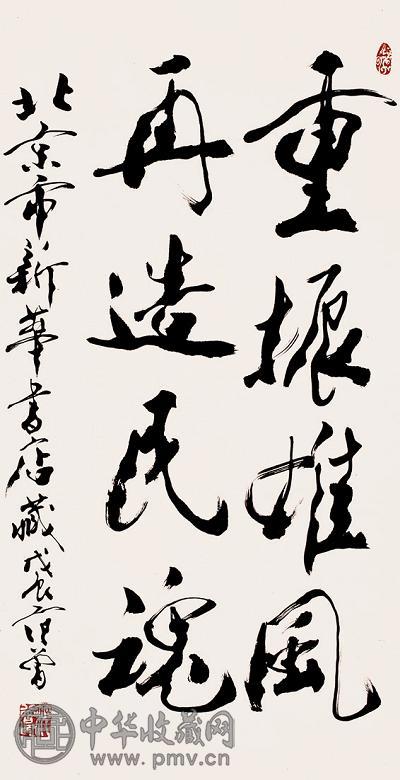 重振雄风
再造民魂
北京市新华書店藏戊辰范曾
中华收藏网
www.pmv.cn